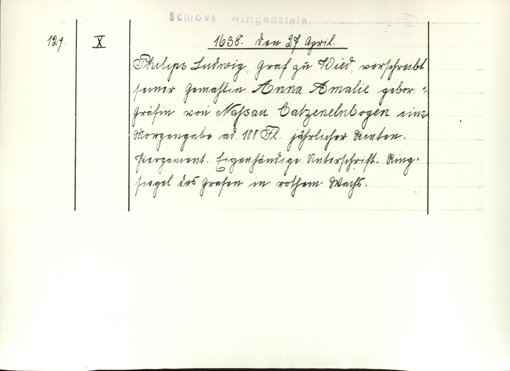 Schloss Wittgenstein
129 X 1638. den 27 April.
Philips Ludwig, Graf zu Wied, verschreibt
seiner Gemahlin Anna Amalie gebor:
Gräfin von Naßau Catzenelnbogen eine
Morgengabe ad 100 Fl. jährlicher Renten.
Pergament. Eigenhändige Unterschrift. Ring-
siegel des Grafen in rothem Wachs.